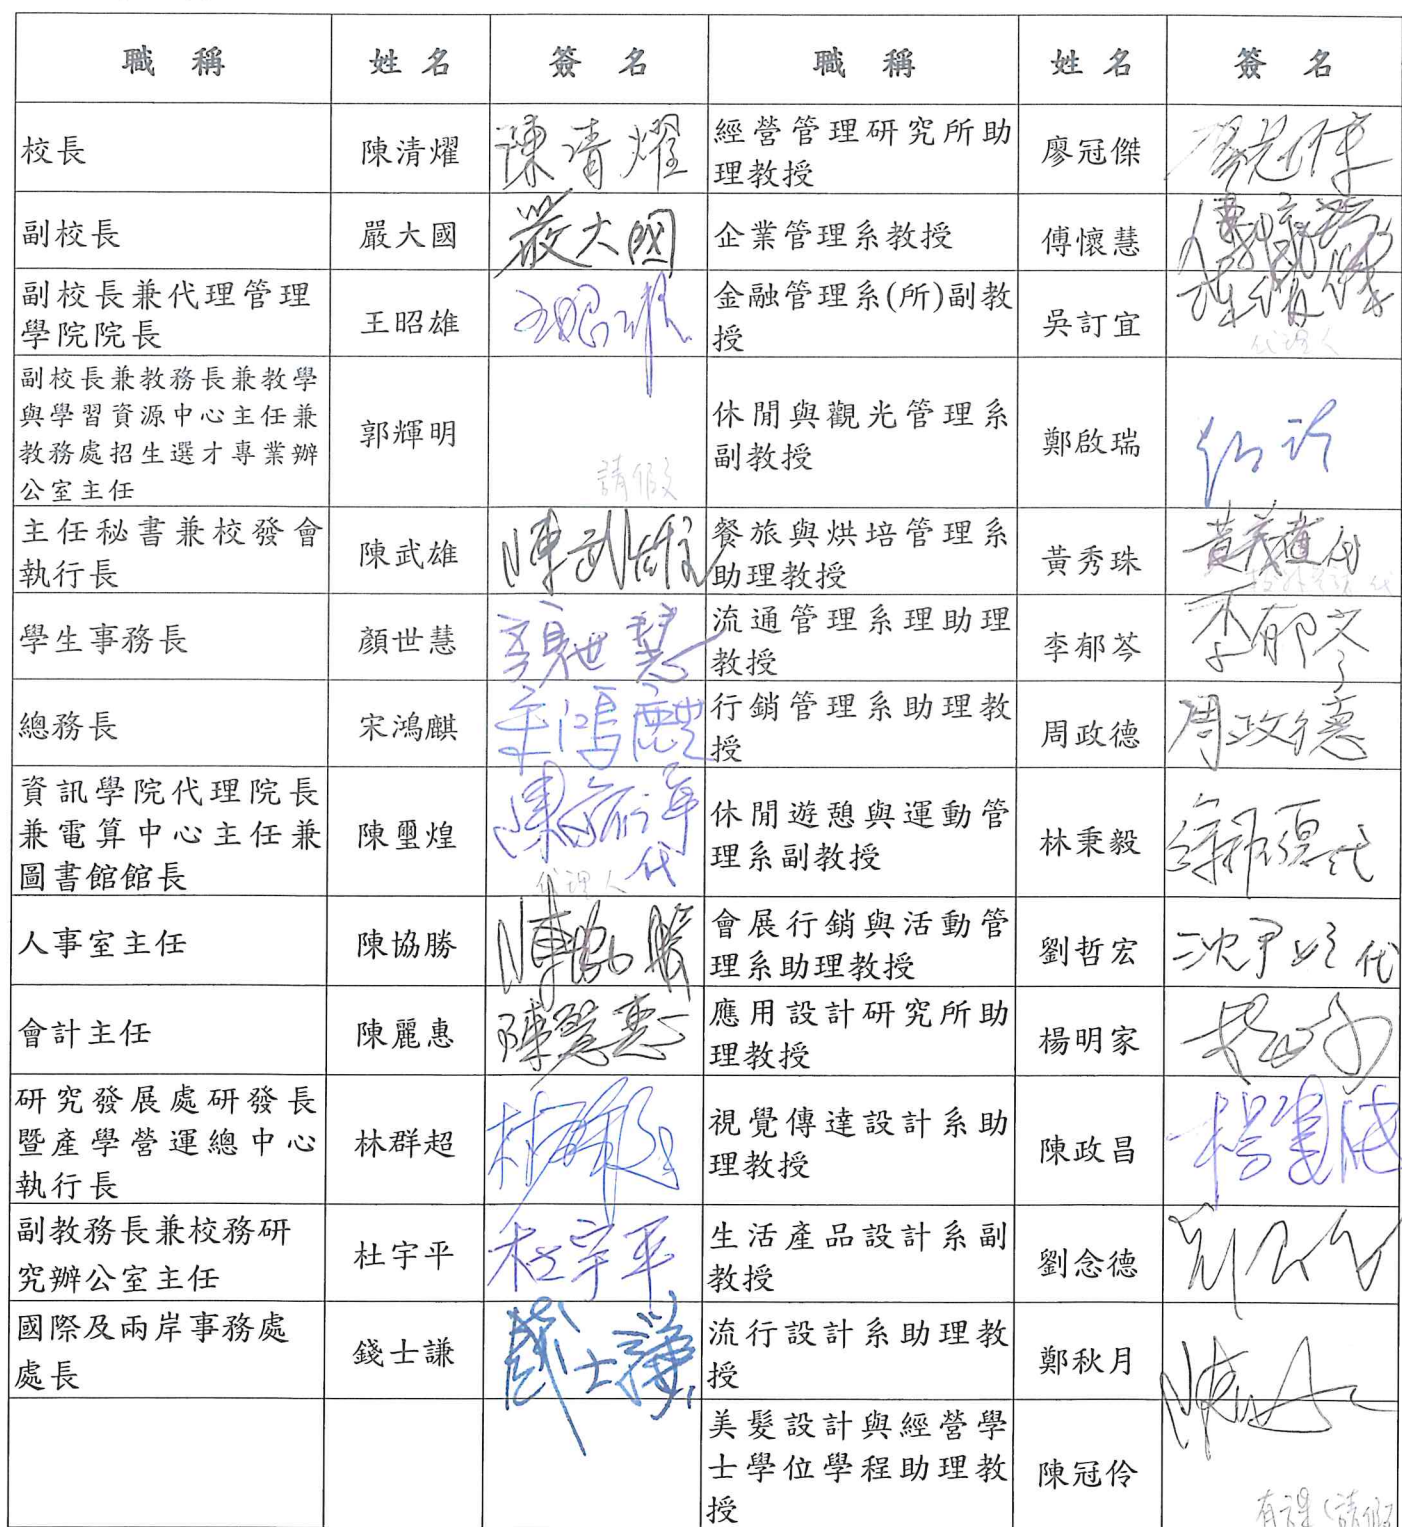 職稱 姓名 簽名 職稱 姓名 簽名
校長 陳清燿 陳清燿 經營管理研究所助
理教授 廖冠傑
副校長 嚴大國 嚴大國 企業管理系教授 傅懷慧
副校長兼代理管理
學院院長 王昭雄 王昭雄 金融管理系(所)副教
授 吳訂宜 代理人
副校長兼教務長兼教學
與學習資源中心主任兼
教務處招生選才專業辦
公室主任 郭輝明 請假 休閒與觀光管理系
副教授 鄭啟瑞
主任秘書兼校發會
執行長 陳武雄 陳武雄 餐旅與烘培管理系
助理教授 黃秀珠
學生事務長 顏世慧 顏世慧 流通管理系理助理
教授 李郁芩 李郁芩
總務長 宋鴻麒 宋鴻麒 行銷管理系助理教
授 周政德 周政德
資訊學院代理院長
兼電算中心主任兼
圖書館館長 陳璽煌 代 代理人 休閒遊憩與運動管
理系副教授 林秉毅 代
人事室主任 陳協勝 陳協勝 會展行銷與活動管
理系助理教授 劉哲宏 代
會計主任 陳麗惠 陳麗惠 應用設計研究所助
理教授 楊明家
研究發展處研發長
暨產學營運總中心
執行長 林群超 林群超 視覺傳達設計系助
理教授 陳政昌
副教務長兼校務研
究辦公室主任 杜宇平 杜宇平 生活產品設計系副
教授 劉念德
國際及兩岸事務處
處長 錢士謙 錢士謙 流行設計系助理教
授 鄭秋月
美髮設計與經營學
士學位學程助理教
授 陳冠伶 有課(請假